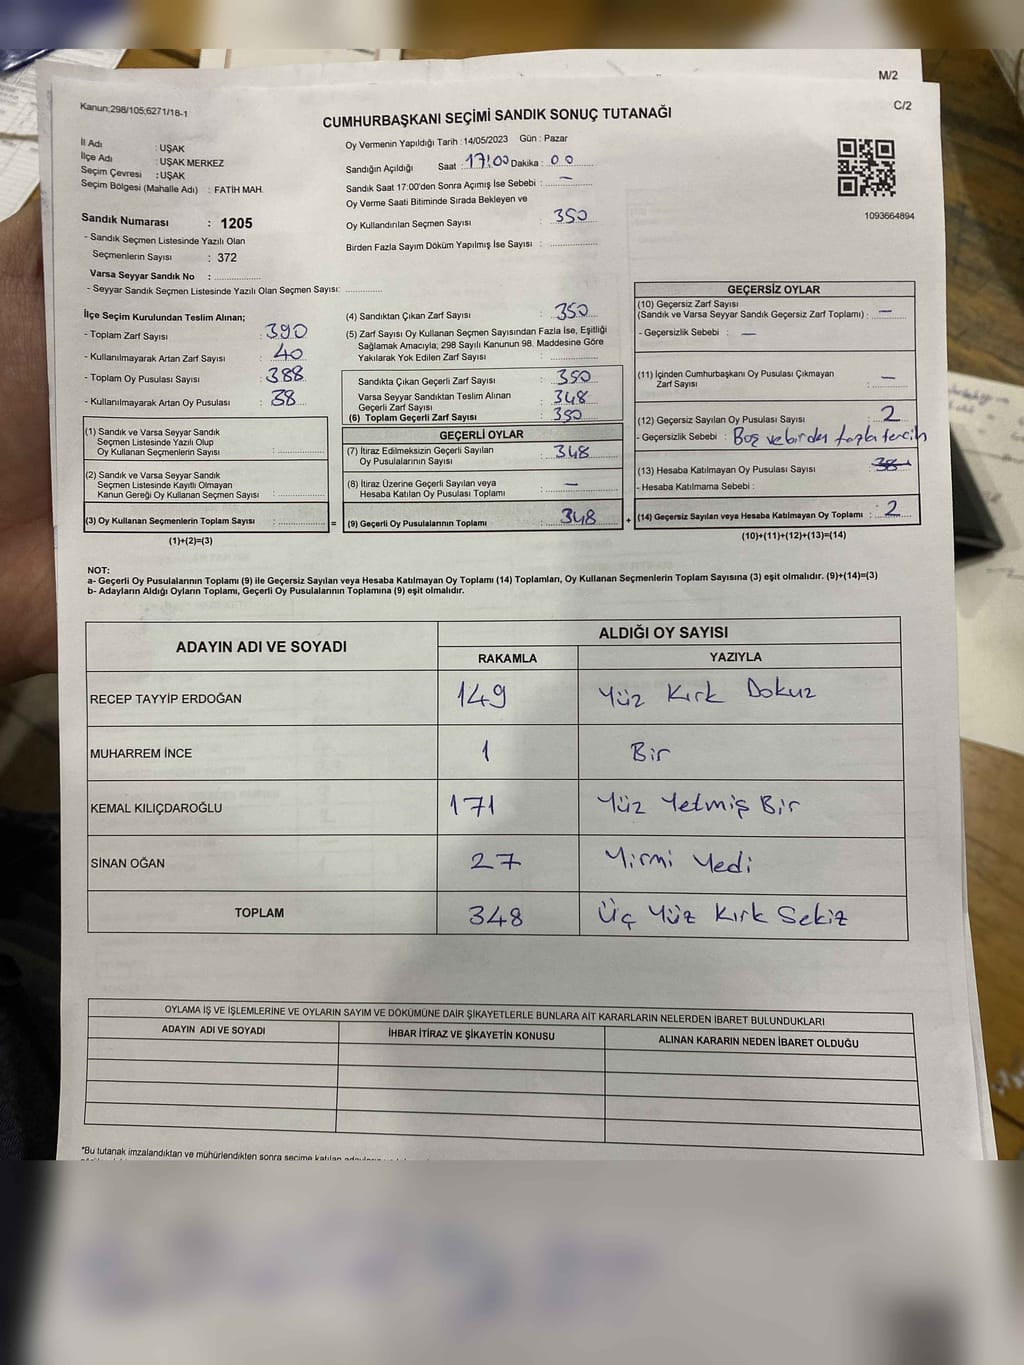 M/2
Kanun;298/105;6271/18-1
C/2
CUMHURBAŞKANI SEÇİMİ SANDIK SONUÇ TUTANAĞI
İl Adı : UŞAK
İlçe Adı : UŞAK MERKEZ
Seçim Çevresi : UŞAK
Seçim Bölgesi (Mahalle Adı) : FATİH MAH.
Oy Vermenin Yapıldığı Tarih : 14/05/2023 Gün : Pazar
Sandığın Açıldığı Saat : 17:00 Dakika : 00
Sandık Saat 17:00'den Sonra Açımış İse Sebebi : –
Oy Verme Saati Bitiminde Sırada Bekleyen ve
Oy Kullandırılan Seçmen Sayısı : 350
Birden Fazla Sayım Döküm Yapılmış İse Sayısı :
1093664894
Sandık Numarası : 1205
- Sandık Seçmen Listesinde Yazılı Olan
Seçmenlerin Sayısı : 372
Varsa Seyyar Sandık No :
- Seyyar Sandık Seçmen Listesinde Yazılı Olan Seçmen Sayısı:
İlçe Seçim Kurulundan Teslim Alınan;
- Toplam Zarf Sayısı : 390
- Kullanılmayarak Artan Zarf Sayısı : 40
- Toplam Oy Pusulası Sayısı : 388
- Kullanılmayarak Artan Oy Pusulası : 38
(1) Sandık ve Varsa Seyyar Sandık
Seçmen Listesinde Yazılı Olup
Oy Kullanan Seçmenlerin Sayısı :
(2) Sandık ve Varsa Seyyar Sandık
Seçmen Listesinde Kayıtlı Olmayan
Kanun Gereği Oy Kullanan Seçmen Sayısı :
(3) Oy Kullanan Seçmenlerin Toplam Sayısı : =
(1)+(2)=(3)
(4) Sandıktan Çıkan Zarf Sayısı : 350
(5) Zarf Sayısı Oy Kullanan Seçmen Sayısından Fazla İse, Eşitliği
Sağlamak Amacıyla; 298 Sayılı Kanunun 98. Maddesine Göre
Yakılarak Yok Edilen Zarf Sayısı :
Sandıkta Çıkan Geçerli Zarf Sayısı : 350
Varsa Seyyar Sandıktan Teslim Alınan
Geçerli Zarf Sayısı : 348
(6) Toplam Geçerli Zarf Sayısı : 350
GEÇERLİ OYLAR
(7) İtiraz Edilmeksizin Geçerli Sayılan
Oy Pusulalarının Sayısı : 348
(8) İtiraz Üzerine Geçerli Sayılan veya
Hesaba Katılan Oy Pusulası Toplamı : –
(9) Geçerli Oy Pusulalarının Toplamı : 348 +
GEÇERSİZ OYLAR
(10) Geçersiz Zarf Sayısı
(Sandık ve Varsa Seyyar Sandık Geçersiz Zarf Toplamı) : –
- Geçersizlik Sebebi : –
(11) İçinden Cumhurbaşkanı Oy Pusulası Çıkmayan
Zarf Sayısı : –
(12) Geçersiz Sayılan Oy Pusulası Sayısı : 2
- Geçersizlik Sebebi : Boş ve birden fazla tercih
(13) Hesaba Katılmayan Oy Pusulası Sayısı : 38
- Hesaba Katılmama Sebebi :
(14) Geçersiz Sayılan veya Hesaba Katılmayan Oy Toplamı : 2
(10)+(11)+(12)+(13)=(14)
NOT:
a- Geçerli Oy Pusulalarının Toplamı (9) ile Geçersiz Sayılan veya Hesaba Katılmayan Oy Toplamı (14) Toplamları, Oy Kullanan Seçmenlerin Toplam Sayısına (3) eşit olmalıdır. (9)+(14)=(3)
b- Adayların Aldığı Oyların Toplamı, Geçerli Oy Pusulalarının Toplamına (9) eşit olmalıdır.
ADAYIN ADI VE SOYADI
ALDIĞI OY SAYISI
RAKAMLA YAZIYLA
RECEP TAYYİP ERDOĞAN 149 Yüz Kırk Dokuz
MUHARREM İNCE 1 Bir
KEMAL KILIÇDAROĞLU 171 Yüz Yetmiş Bir
SİNAN OĞAN 27 Yirmi Yedi
TOPLAM 348 Üç Yüz Kırk Sekiz
OYLAMA İŞ VE İŞLEMLERİNE VE OYLARIN SAYIM VE DÖKÜMÜNE DAİR ŞİKAYETLERLE BUNLARA AİT KARARLARIN NELERDEN İBARET BULUNDUKLARI
ADAYIN ADI VE SOYADI İHBAR İTİRAZ VE ŞİKAYETİN KONUSU ALINAN KARARIN NEDEN İBARET OLDUĞU
*Bu tutanak imzalandıktan ve mühürlendikten sonra seçime katılan